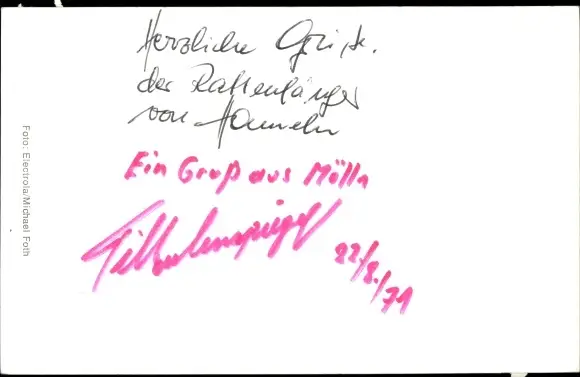 Herzliche Grüße.
der Rattenfänger
von Hameln
Ein Gruß aus Mölln
Till Eulenspiegel
22/8./71
Foto: Electrola/Michael Foth